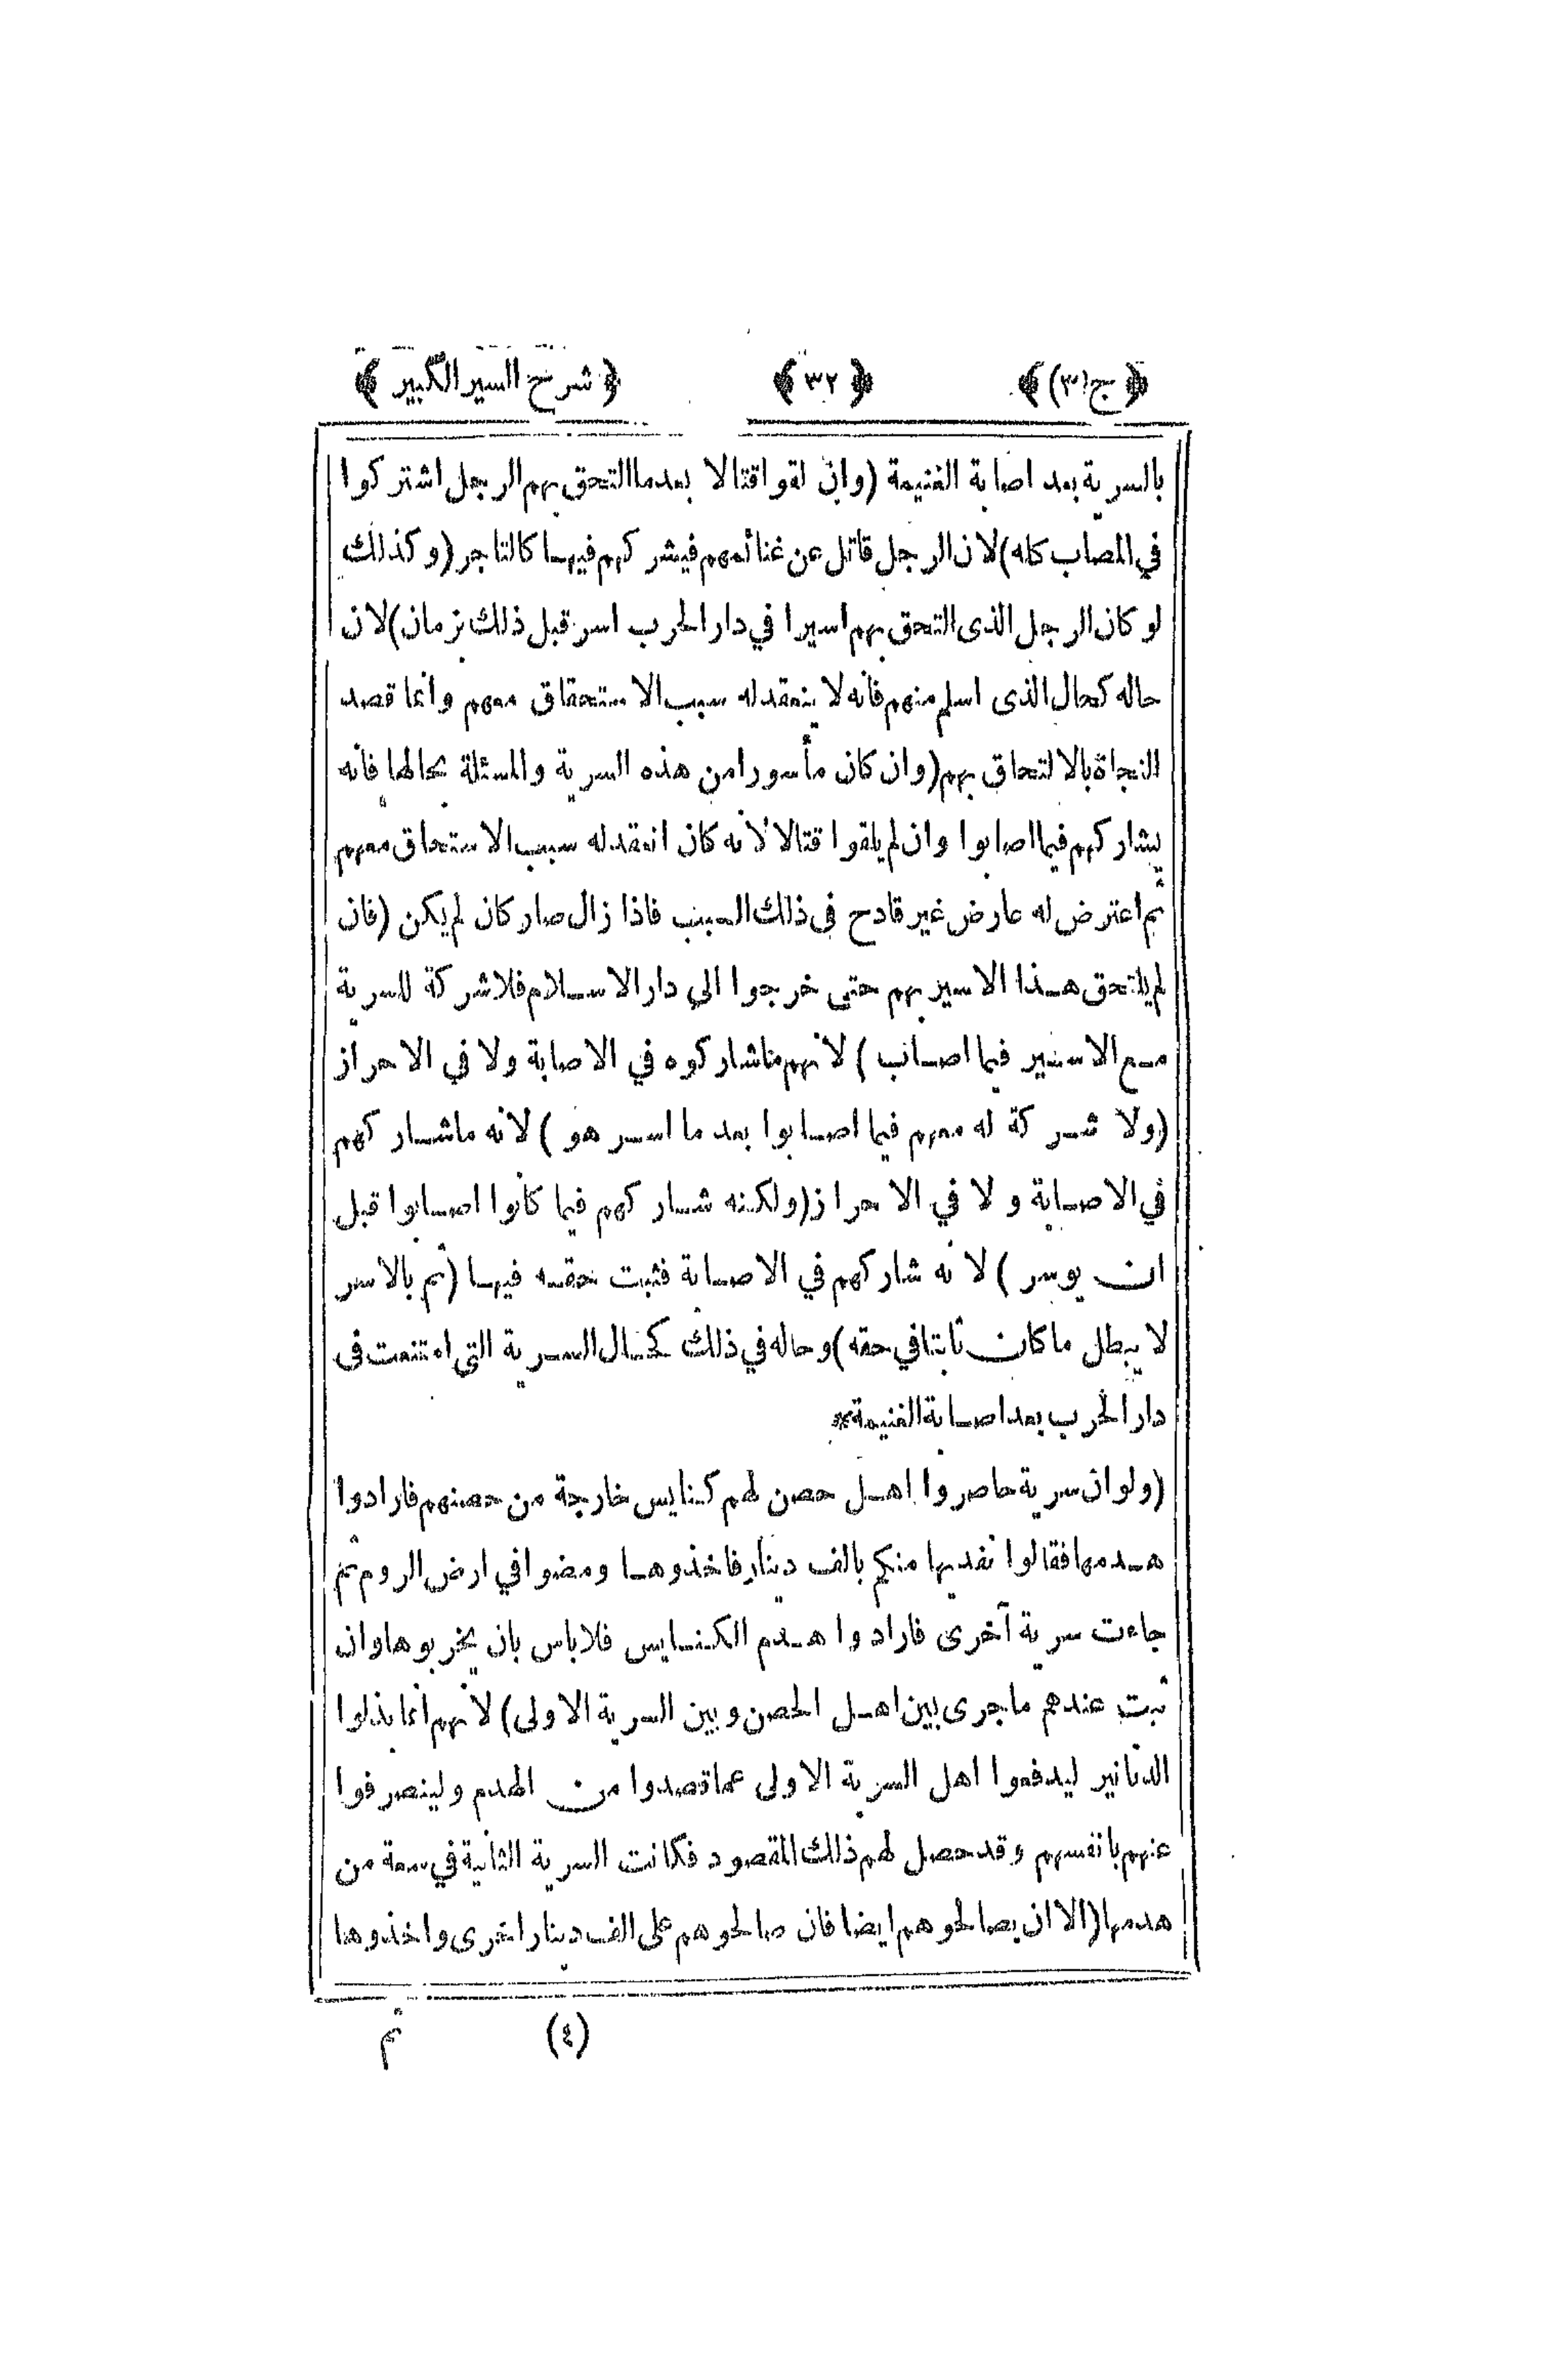 ﴿ ج (٣) ﴾ ﴿ ٣٢ ﴾ ﴿ شرح السير الكبير ﴾
بالسرية بعد اصابة الغنيمة (وان لقوا قتالا بعد ما التحق بهم الرجل اشتركوا
في المصاب كله) لان الرجل قاتل عن غنائمهم فيشركهم فيها كالتاجر (وكذلك
لو كان الرجل الذى التحق بهم اسيرا في دار الحرب اسر قبل ذلك بزمان) لان
حاله كحال الذى اسلم منهم فانه لا ينعقد له سبب الاستحقاق معهم وانما قصد
النجاة بالالتحاق بهم (وان كان مأسورا من هذه السرية والمسئلة بحالها فانه
يشاركهم فيما اصابوا وان لم يلقوا قتالا لأنه كان انعقد له سبب الاستحقاق معهم
ثم اعترض له عارض غير قادح فى ذلك السبب فاذا زال صار كان لم يكن (فان
لم يلتحق هذا الاسير بهم حتى خرجوا الى دار الاسلام فلا شركة للسرية
مع الاسير فيما اصاب) لانهم ما شاركوه في الاصابة ولا في الاحراز
(ولا شركة له معهم فيما اصابوا بعد ما اسر هو) لانه ما شاركهم
في الاصابة ولا في الاحراز (ولكنه شاركهم فيما كانوا اصابوا قبل
ان يوسر) لانه شاركهم في الاصابة فثبت حقه فيها (ثم بالاسر
لا يبطل ما كان ثابتا في حقه) وحاله في ذلك كحال السرية التى امتنعت فى
دار الحرب بعد اصابة الغنيمة *
(ولو ان سرية حاصروا اهل حصن لهم كنايس خارجة من حصنهم فارادوا
هدمها فقالوا نفديها منكم بالف دينار فاخذوها ومضوا في ارض الروم ثم
جاءت سرية آخرى فارادوا هدم الكنايس فلا باس بان يخربوها وان
ثبت عندهم ما جرى بين اهل الحصن وبين السرية الاولى) لانهم انما بذلوا
الدنانير ليدفعوا اهل السرية الاولى عما قصدوا من الهدم ولينصرفوا
عنهم بانفسهم وقد حصل لهم ذلك المقصود فكانت السرية الثانية في سعة من
هدمها (الا ان يصالحوهم ايضا فان صالحوهم على الف دينار اخرى واخذوها
(٤) ثم